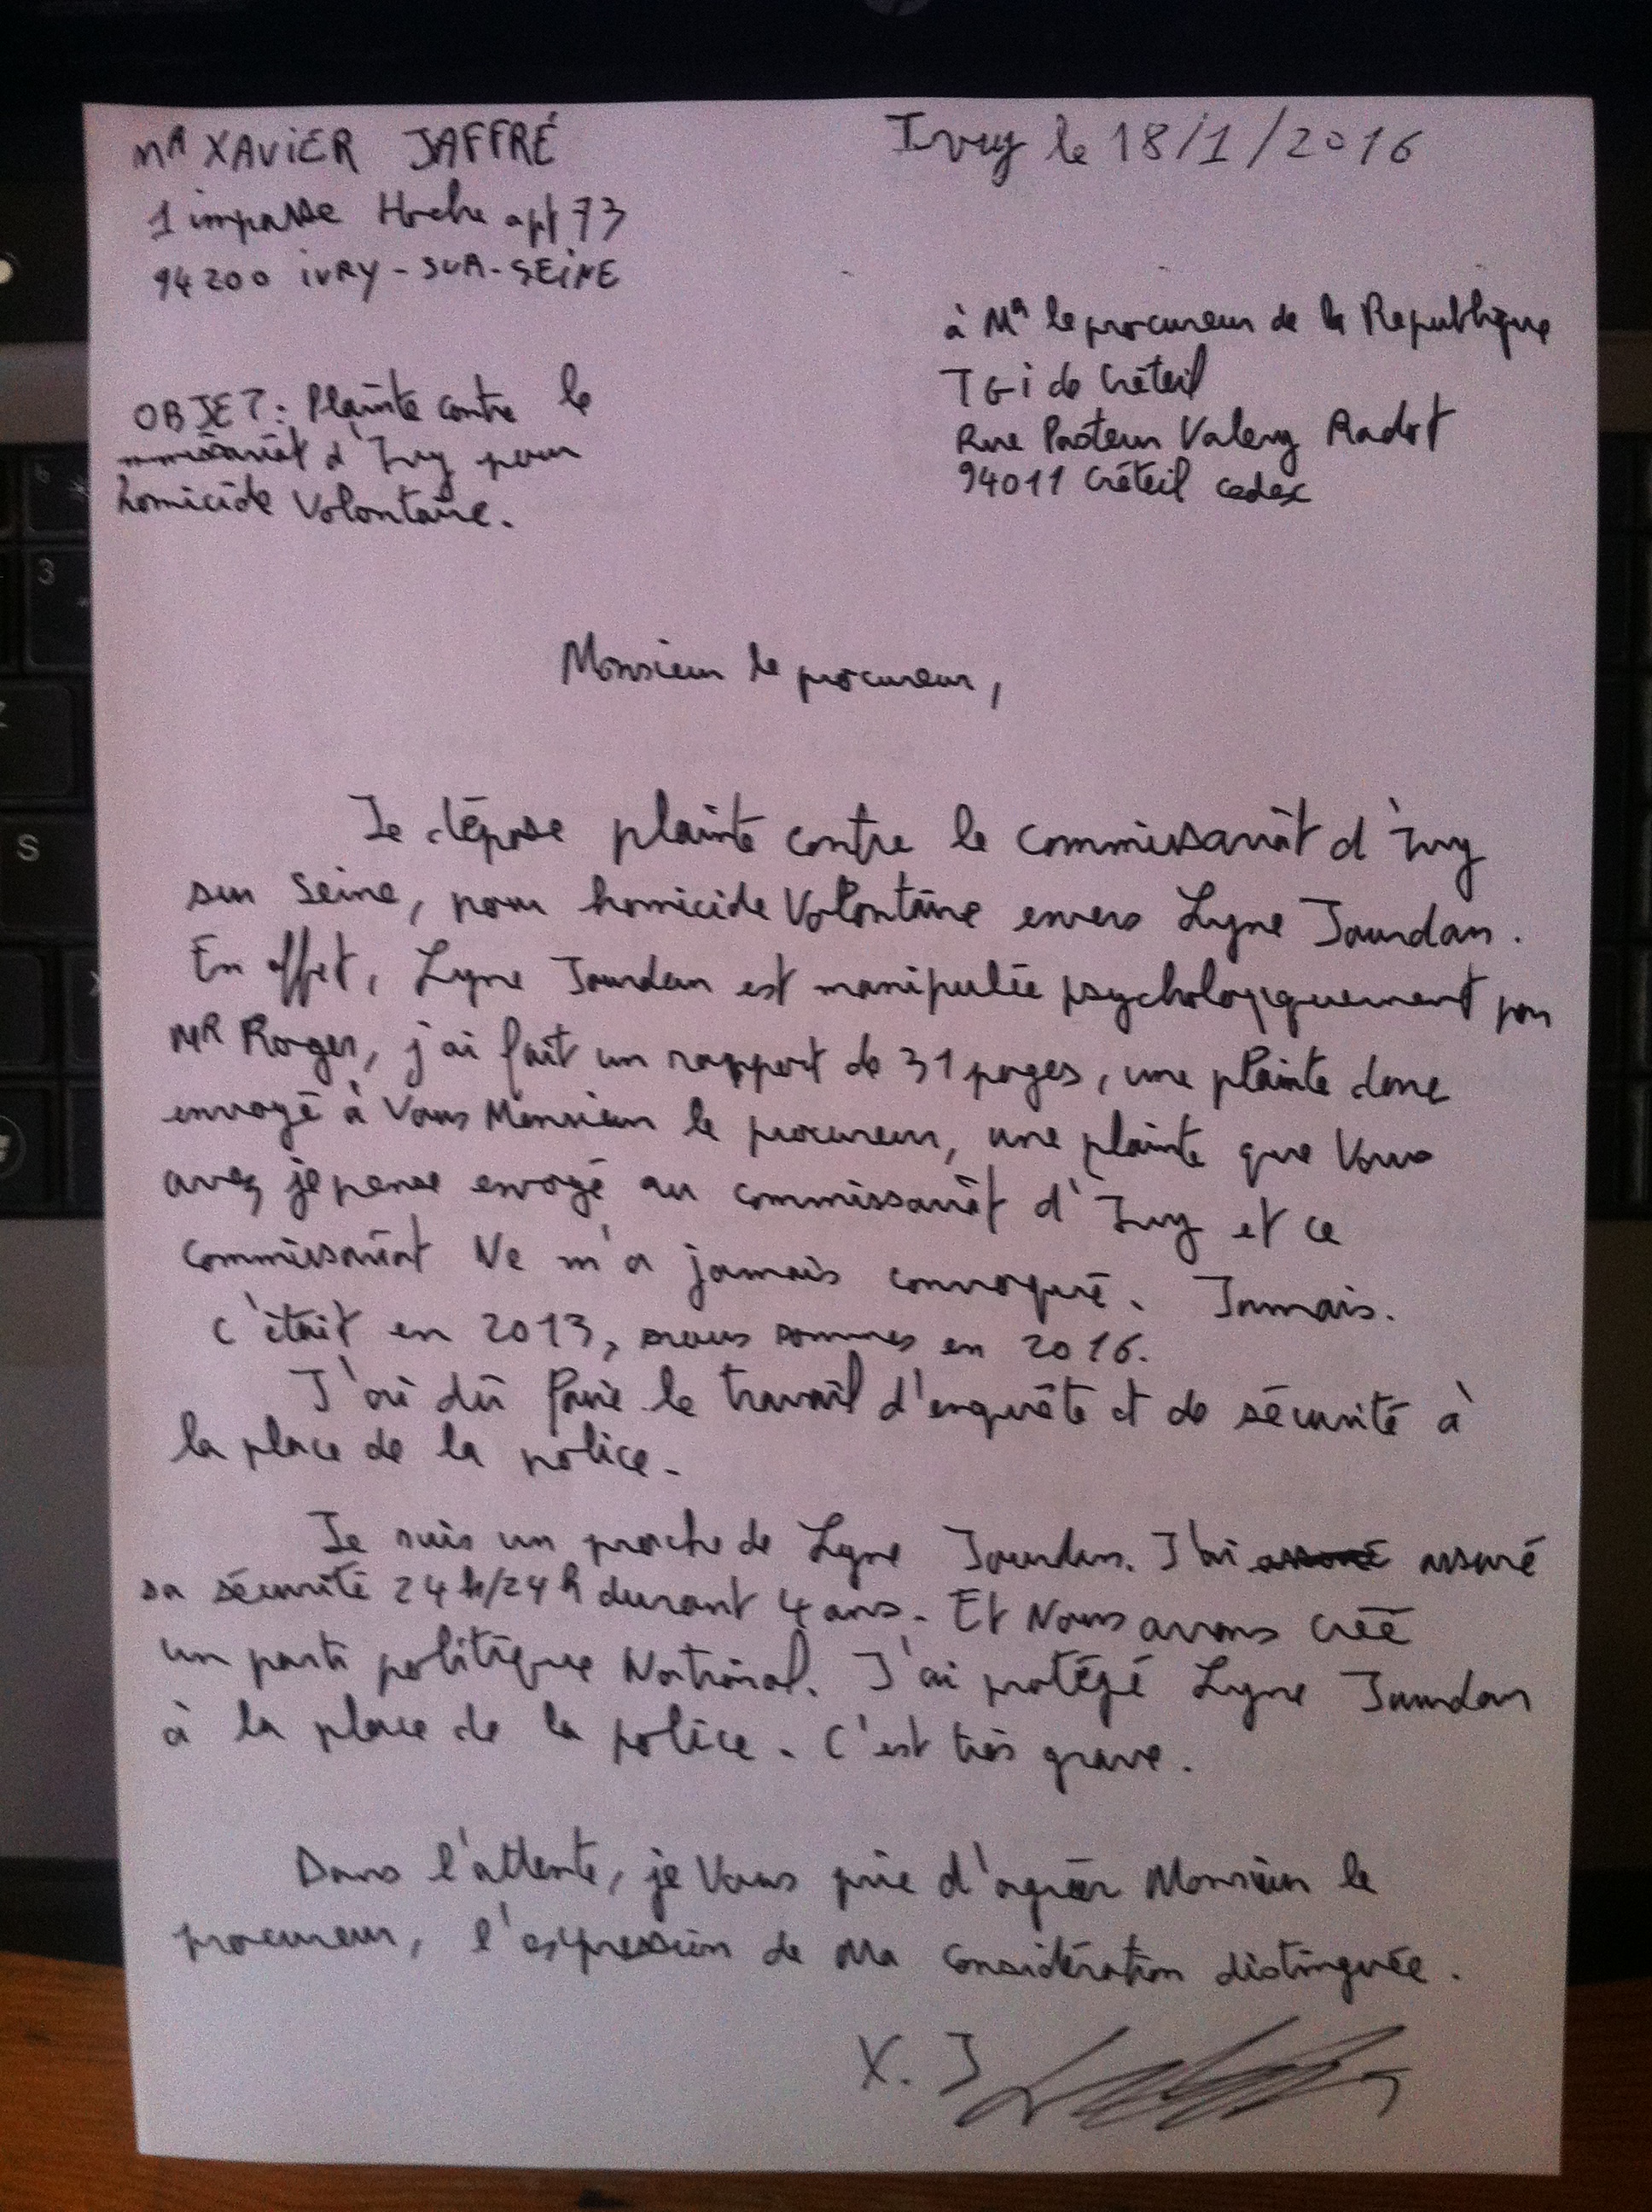 Mr XAVIER JAFFRÉ
1 impasse Hoche apt 73
94200 IVRY-SUR-SEINE
Ivry le 18/1/2016
à Mr le procureur de la Republique
TGi de Créteil
Rue Pasteur Valery Radot
94011 Créteil cedex
OBJET: Plainte contre le
commissariat d'Ivry pour
homicide Volontaire.
Monsieur le procureur,
Je dépose plainte contre le commissariat d'Ivry
sur Seine, pour homicide Volontaire envers Lyne Jourdan.
En effet, Lyne Jourdan est manipulée psychologiquement par
Mr Roger, j'ai fait un rapport de 31 pages, une plainte donc
envoyé à Vous Monsieur le procureur, une plainte que Vous
avez je pense envoyé au commissariat d'Ivry et ce
commissariat Ne m'a jamais convoqué. Jamais.
C'était en 2013, nous sommes en 2016.
J'ai dû faire le travail d'enquête et de sécurité à
la place de la police.
Je suis un proche de Lyne Jourdan. J'ai assuré
sa sécurité 24h/24h durant 4 ans. Et Nous avons créé
un parti politique National. J'ai protégé Lyne Jourdan
à la place de la police. C'est très grave.
Dans l'attente, je Vous prie d'agréer Monsieur le
procureur, l'expression de Ma considération distinguée.
X. J
3
S